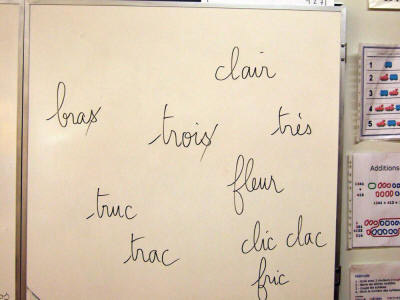 427
clair
bras
trois
très
fleur
truc
trac
clic clac
fric
1
2
3
4
5
Additions